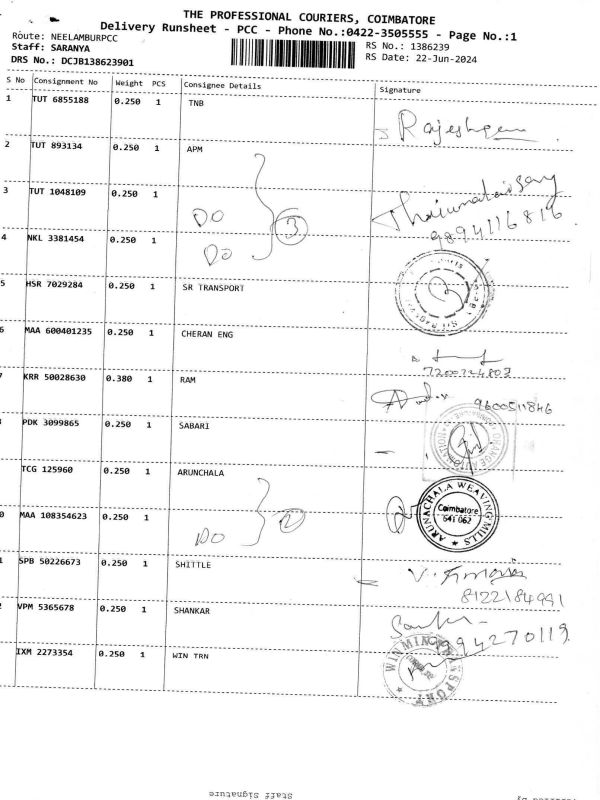 THE PROFESSIONAL COURIERS, COIMBATORE
Delivery Runsheet - PCC - Phone No.:0422-3505555 - Page No.:1
Route: NEELAMBURPCC
RS No.: 1386239
Staff: SARANYA
RS Date: 22-Jun-2024
DRS No.: DCJB138623901
S No Consignment No Weight PCS Consignee Details Signature
1 TUT 6855188 0.250 1 TNB Rajesh
2 TUT 893134 0.250 1 APM
3 TUT 1048109 0.250 1 DO 3 9894116816
4 NKL 3381454 0.250 1 DO
5 HSR 7029284 0.250 1 SR TRANSPORT
6 MAA 600401235 0.250 1 CHERAN ENG 7200224803
KRR 50028630 0.380 1 RAM 9600511846
PDK 3099865 0.250 1 SABARI
TCG 125960 0.250 1 ARUNCHALA
ARUNACHALA WEAVING MILLS
Coimbatore
641 062
0 MAA 108354623 0.250 1 DO 2
1 SPB 50226673 0.250 1 SHITTLE 8122184991
2 VPM 5365678 0.250 1 SHANKAR 994270119
IXM 2273354 0.250 1 WIN TRN
Staff Signature